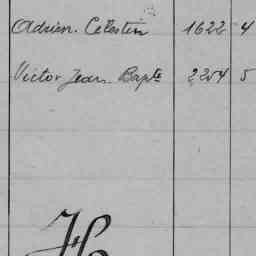 Adrien. Célestin 1622 4
Victor Jean Bapte 2254 5
H